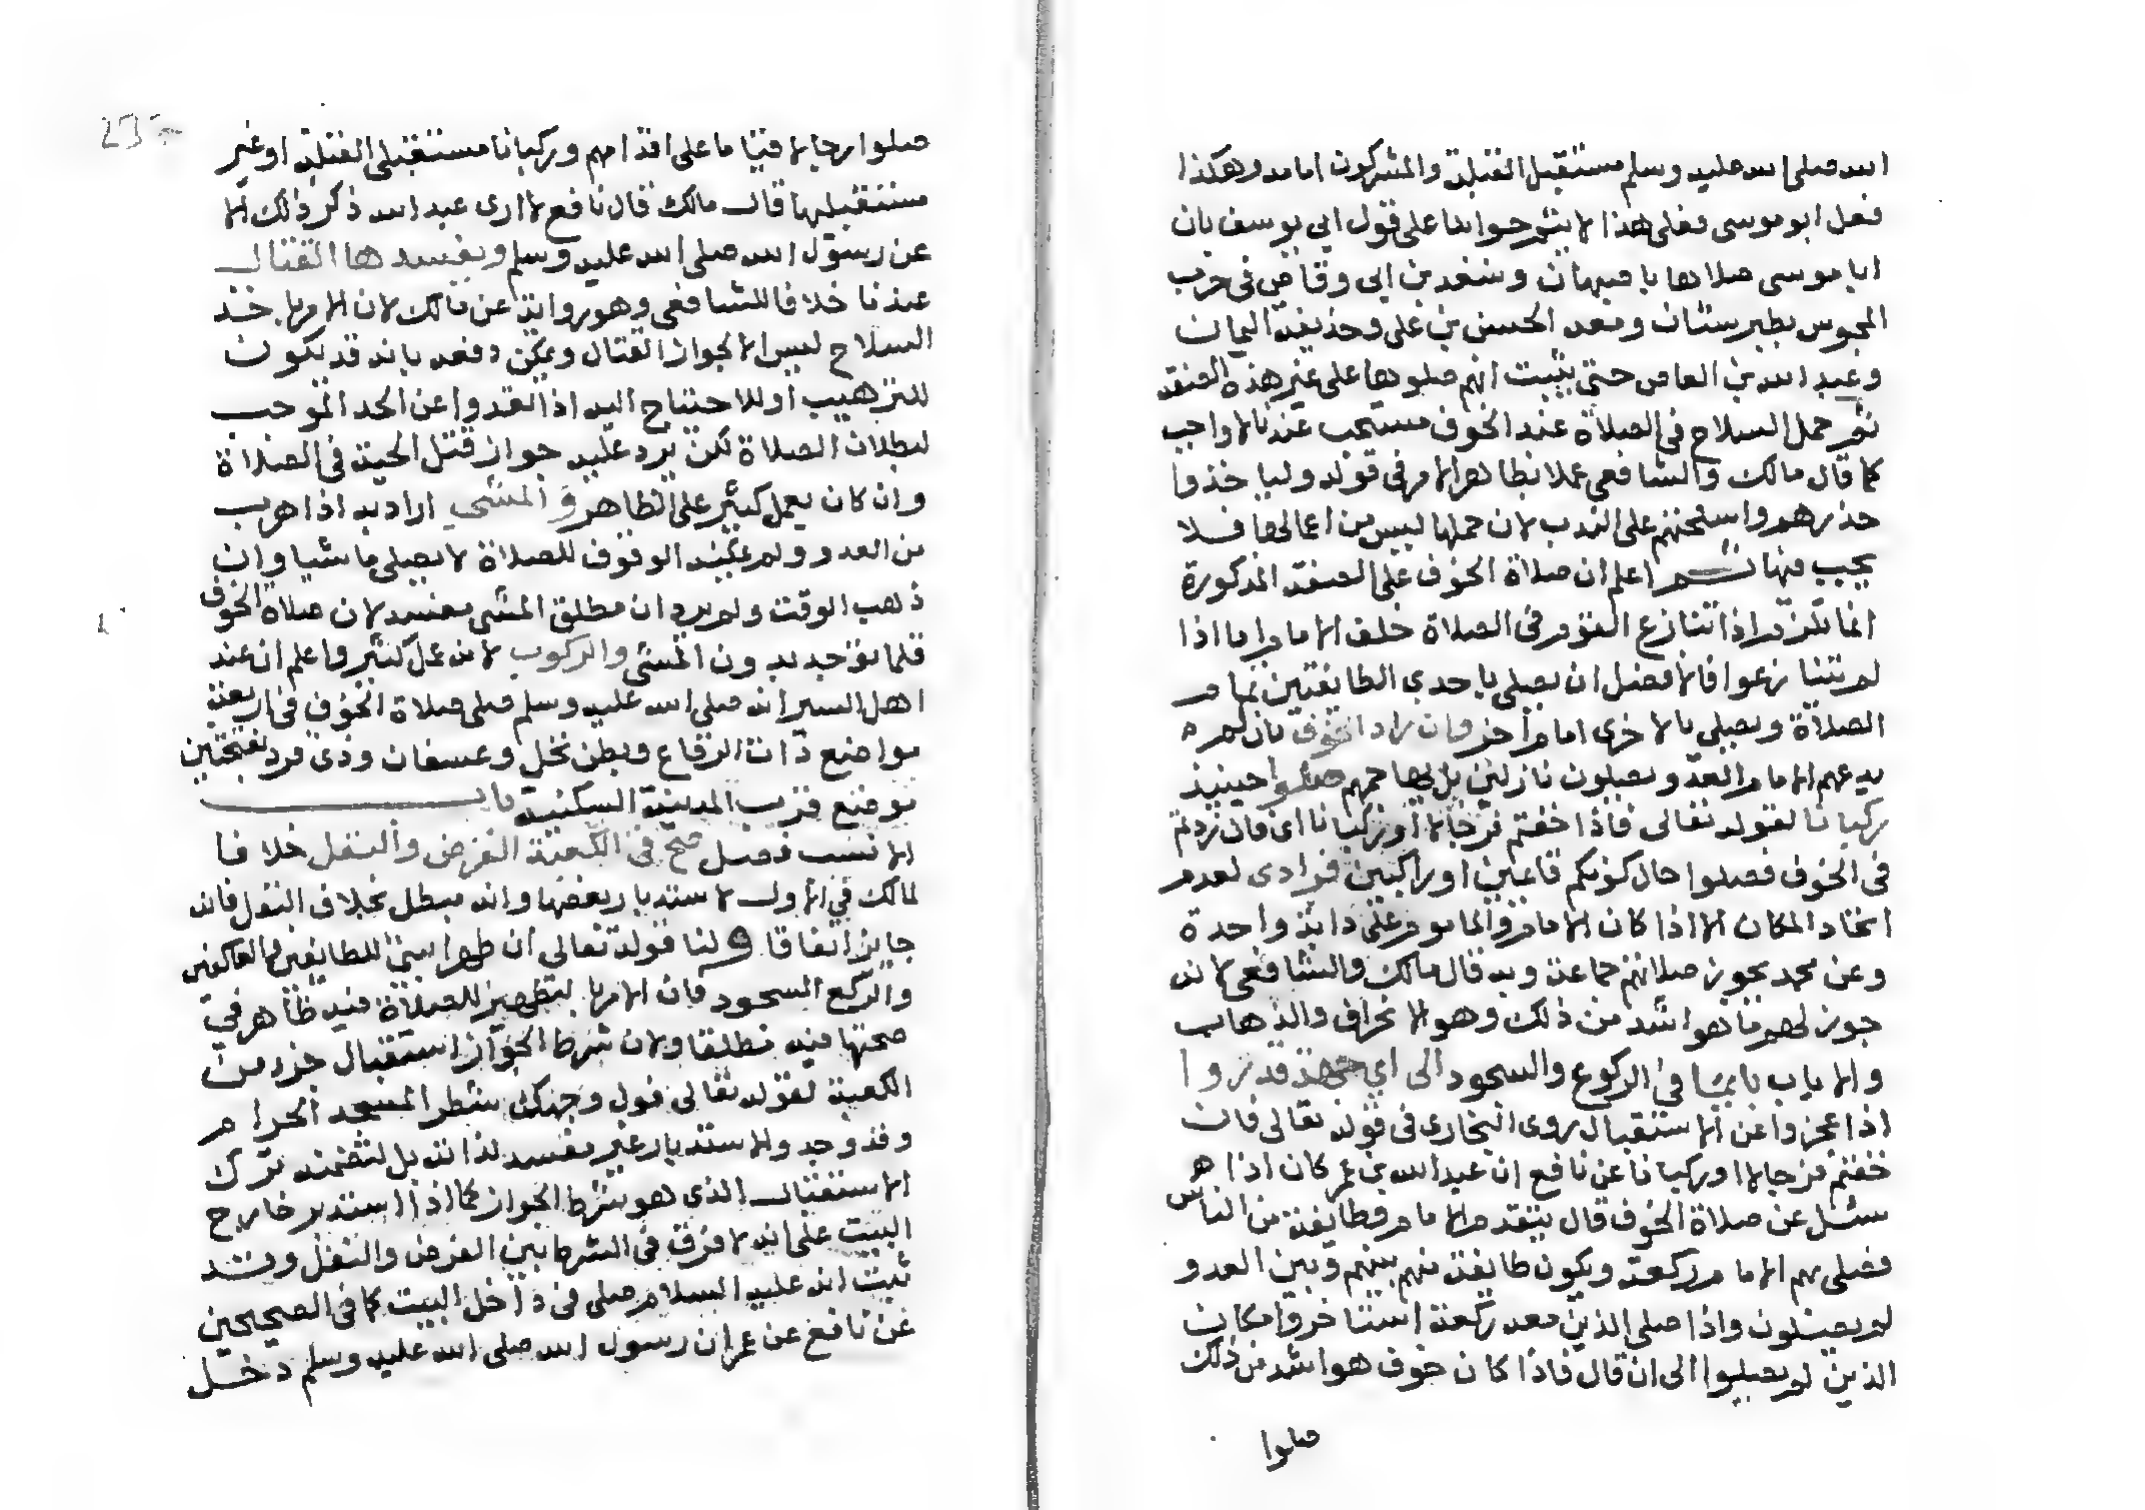 الله صلى الله عليه وسلم مستقبل القبلة والمشركون امامه وهكذا
فعل ابو موسى فعلى هذا لا يتم جوابنا على قول ابي يوسف بان
ابا موسى صلاها باصبهان وسعد بن ابي وقاص في حرب
المجوس بطبرستان ومعه الحسن بن علي وحذيفة اليمان
وعبد الله بن العاص حتى يثبت انهم صلوها على غير هذه الصفة
ثم حمل السلاح في الصلاة عند الخوف مستحب عندنا لا واجب
كما قال مالك والشافعي عملا بظاهر الامر في قوله وليا خذوا
حذرهم واسلحتهم على الندب لان حملها ليس من اعمالها فلا
يجب فيها ثم اعلم ان صلاة الخوف على الصفة المذكورة
انما تلزم اذا تنازع القوم في الصلاة خلف الامام اما اذا
لم يتنازعوا فالافضل ان يصلي باحدى الطائفتين تمام
الصلاة ويصلي بالاخرى امام اخر وان زاد الخوف بان لم
يدعهم الامام العدو يصلون نازلين بل يهاجمهم صلوا حينيذ
ركبانا لقوله تعالى فاذا خفتم فرجالا او ركبانا اي فان زدتم
في الخوف فصلوا حال كونكم قائمين او راكبين فرادى لعدم
اتحاد المكان الا اذا كان الامام والماموم على دابة واحدة
وعن محمد يجوز صلاتهم جماعة وبه قال مالك والشافعي لانه
جوز لهم ما هو اشد من ذلك وهو الانحراف والذهاب
والاياب بايما في الركوع والسجود الى اي جهة قدروا
اذا عجزوا عن الاستقبال روى البخاري في قوله تعالى فان
خفتم فرجالا او ركبانا عن نافع ان عبد الله بن عمر كان اذا
سئل عن صلاة الخوف قال يتقدم الامام وطايفة من الناس
فصلى بهم الامام ركعة ويكون طايفة منهم بينهم وبين العدو
لم يصلون واذا صلى الذين معه ركعة استاخروا مكان
الذين لم يصلوا الى ان قال فاذا كان خوف هو اشد من ذلك
صلوا
صلوا رجالا قياما على اقدامهم وركبانا مستقبلي القبلة او غير
مستقبليها قال مالك قال نافع لا ارى عبد الله ذكر ذلك الا
عن رسول الله صلى الله عليه وسلم ويفسدها القتال
عندنا خلافا للشافعي وهو رواية عن مالك لان الامر باخذ
السلاح ليس الا لجواز القتال ويمكن دفعه بانه قد يكون
للترهيب او للاحتياج اليه اذا تعدوا عن الحد الموجب
لبطلان الصلاة لكن يرد عليه جواز قتل الحية في الصلاة
وان كان بعمل كثير على الظاهر والمشي اراد به اذا هرب
من العدو ولم يمكنه الوقوف للصلاة لا يصلي ماشيا وان
ذهب الوقت ولم يرد ان مطلق المشي مفسد لان صلاة الخوف
قلما توجد بدون المشي والركوب لانه عمل كثير واعلم ان عند
اهل السير انه صلى الله عليه وسلم صلى صلاة الخوف في اربعة
مواضع ذات الرقاع وبطن نخل وعسفان وذي قرد بفتحتين
موضع قرب المدينة السكينة باب
الانسب فصل صح في الكعبة الفرض والنفل خلافا
لمالك في الاول لاستدبار بعضها وانه مبطل بخلاف النفل فانه
جايز اتفاقا ولنا قوله تعالى ان طهرا بيتي للطايفين والعاكفين
والركع السجود فان الامر بالتطهير للصلاة فيه ظاهر في
صحتها فيه مطلقا ولان شرط الجواز استقبال جزء من
الكعبة لقوله تعالى فول وجهك شطر المسجد الحرام
وقد وجد والاستدبار غير مفسد لذاته بل لتضمنه ترك
الاستقبال الذي هو شرط الجواز كما اذا استدبر خارج
البيت على انه لا فرق في الشرط بين الفرض والنفل وقد
ثبت انه عليه السلام صلى في داخل البيت كما في الصحيحين
عن نافع عن عمر ان رسول الله صلى الله عليه وسلم دخل